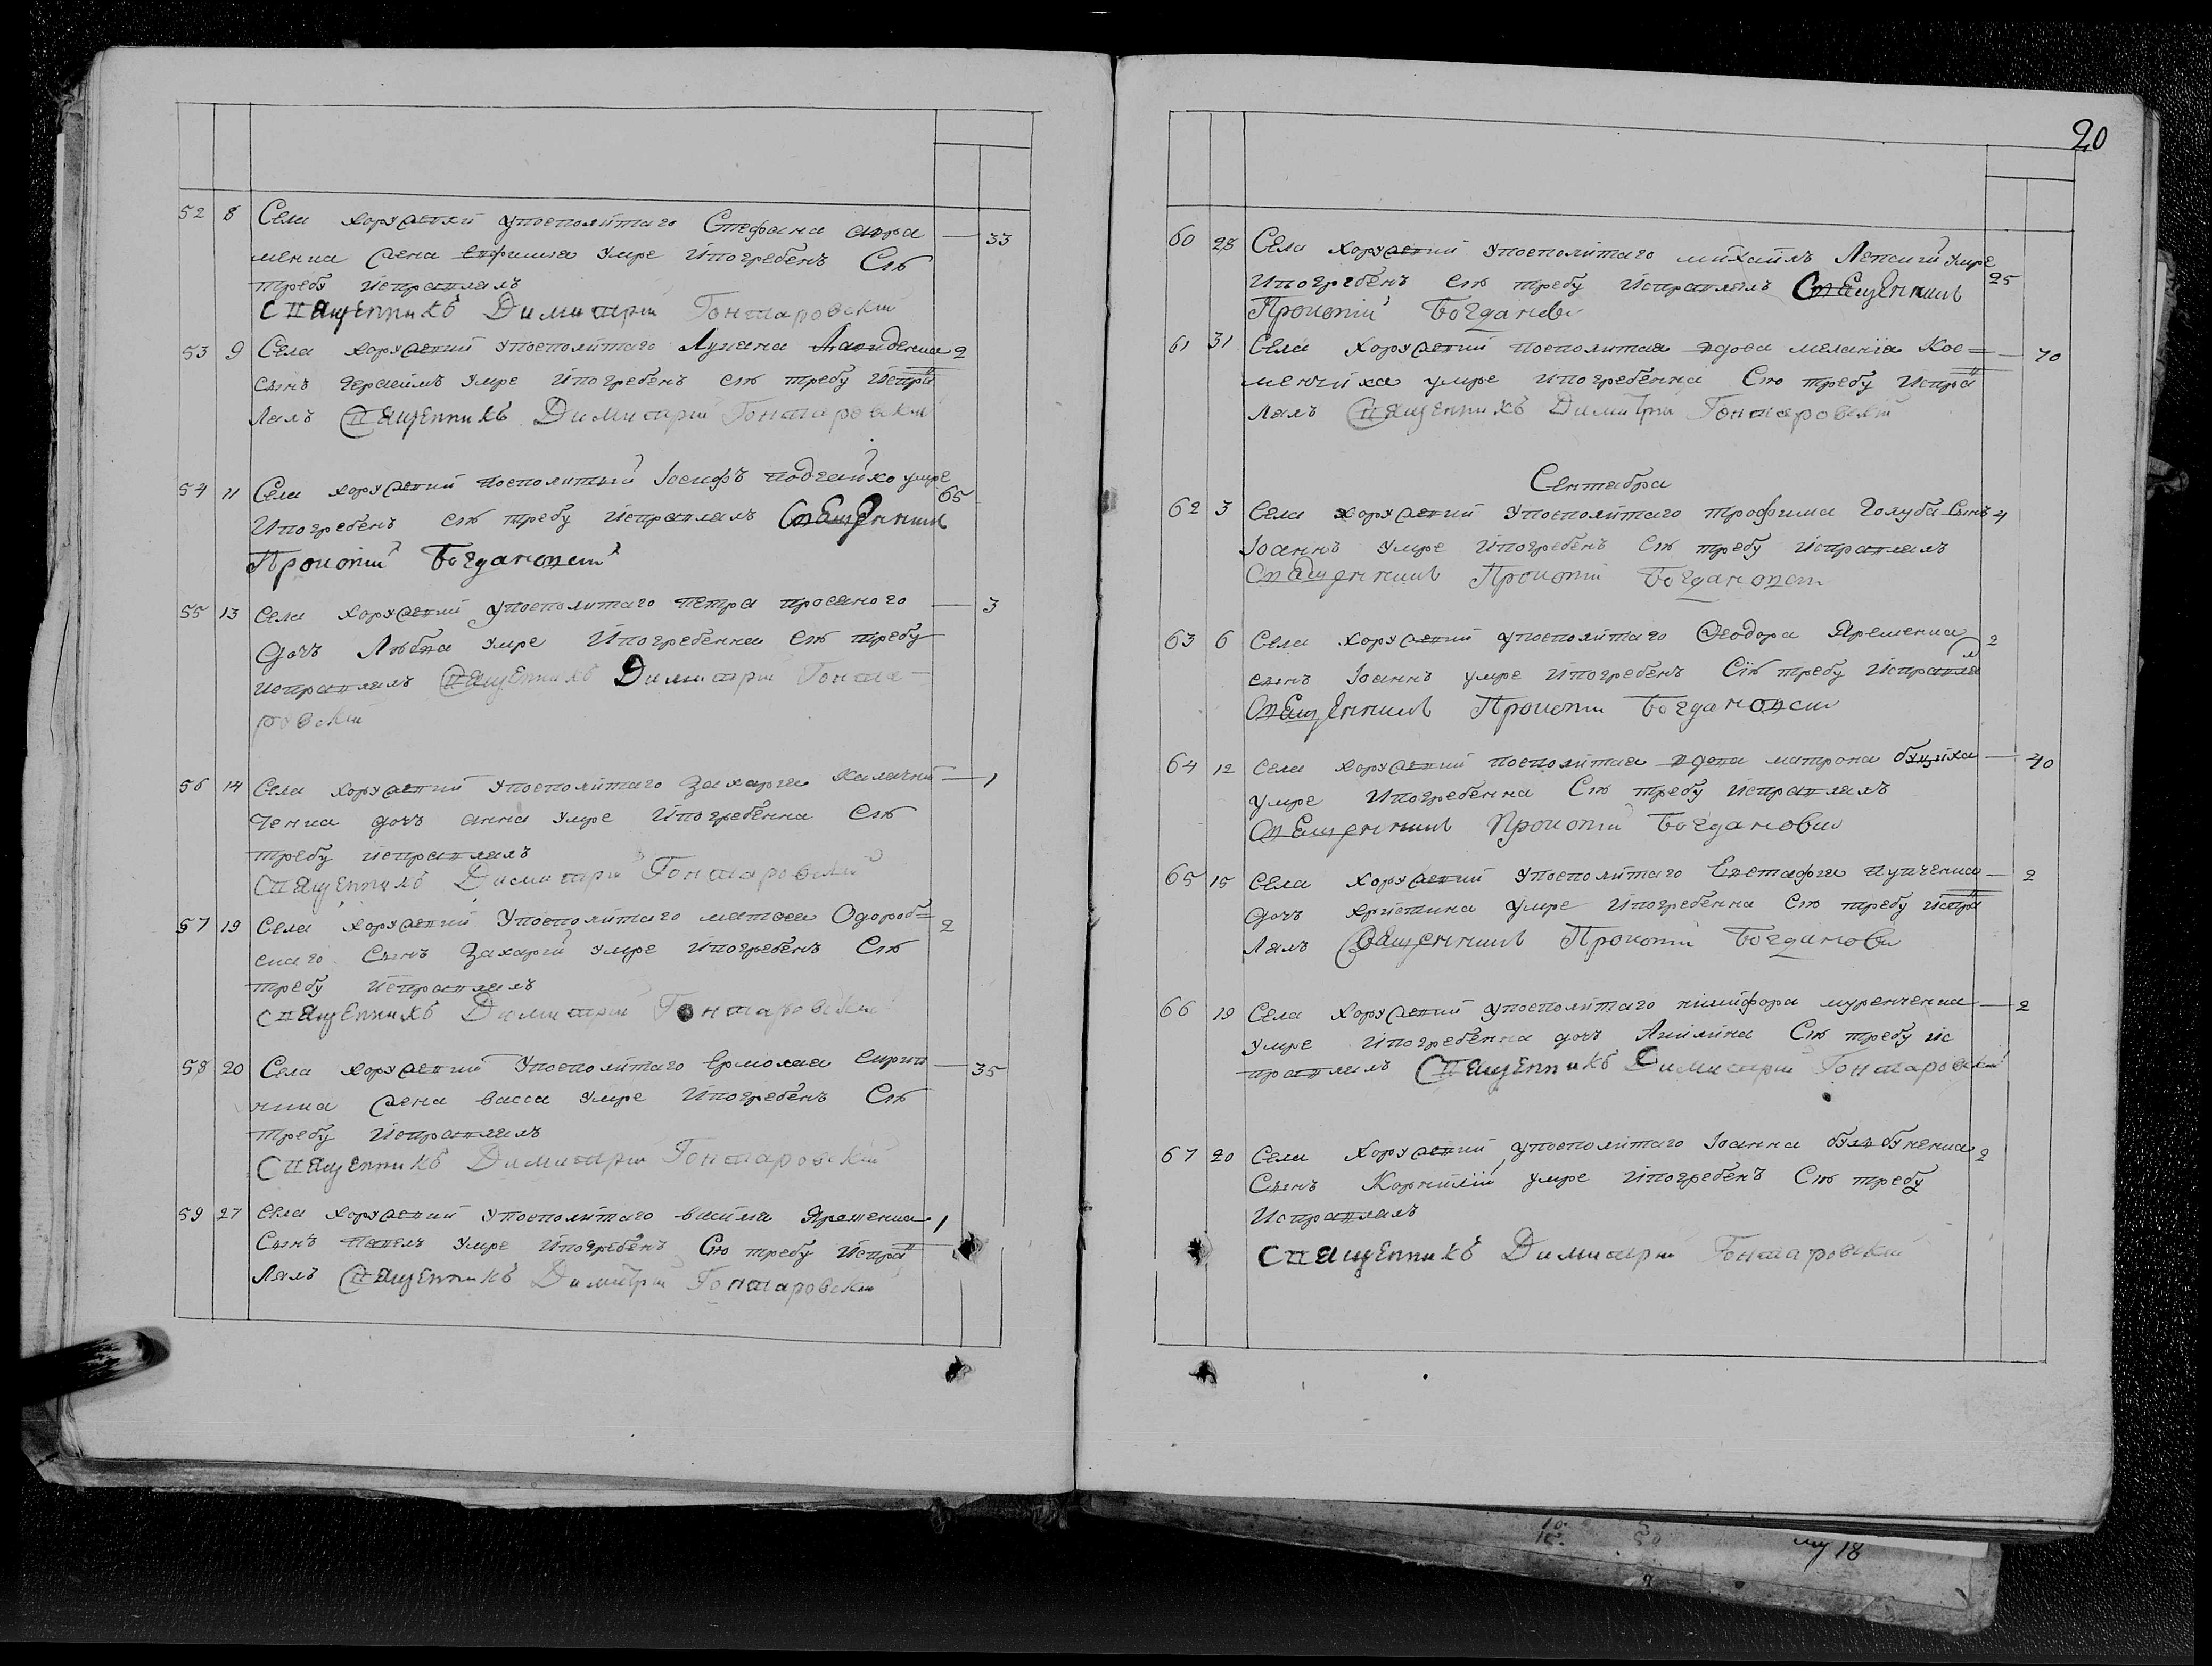 20
52 8 Села хоружевки упосполитаго Стефана авра — 33
менка жена евфимиа умре ипогребенъ Сию
требу исправлялъ
Священникъ Димитрій Гонтаровскій
53 9 Села хоружевки упосполитаго Лукиана 2
сынъ герасимъ умре ипогребенъ сию требу испра
влялъ Священникъ Димитрій Гонтаровскій
54 11 Села хоружевки посполитый Іосифъ подгайко умре 65
ипогребенъ сию требу исправлялъ Священникъ
Прокопій Богдановскій
55 13 Села хоружевки упосполитаго петра просяного — 3
дочъ Любва умре ипогребенна сию требу
исправлялъ Священникъ Димитрій Гонта-
ровскій
56 14 Села хоружевки упосполитаго захариа калачни — 1
ченка дочъ анна умре ипогребенна сию
требу исправлялъ
Священникъ Димитрій Гонтаровскій
57 19 Села хоружевки упосполитаго матвеа Одороб= 2
скаго Сынъ Захарій умре ипогребенъ Сию
требу исправлялъ
Священникъ Димитрій Гонтаровскій
58 20 Села хоружевки упосполитаго Ермолаа — 35
жена васса умре ипогребенъ Сию
требу исправлялъ
Священникъ Димитрій Гонтаровскій
59 27 Села хоружевки упосполитаго василиа Яременка 1
Сынъ павелъ умре ипогребенъ Сию требу испра
влялъ Священникъ Димитрій Гонтаровскій
60 28 Села хоружевки упосполитаго михаилъ умре 25
ипогребенъ сию требу исправлялъ Священникъ
Прокопій Богданов
61 31 Села хоружевки посполитая вдова меланіа Кос= — 70
менчиха умре ипогребенна Сию требу испра
влялъ Священникъ Димитрій Гонтаровскій
Сентабра
62 3 Села хоружевки упосполитаго трофима Голуба Сынъ 4
Іоаннъ умре ипогребенъ Сию требу исправлялъ
Священникъ Прокопій Богдановскій
63 6 Села хоружевки упосполитаго Феодора Яременка 2
сынъ Іоаннъ умре ипогребенъ Сию требу исправля
Священникъ Прокопій Богдановскій
64 12 Села хоружевки посполитая вдова матрона — 40
умре ипогребенна Сию требу исправлялъ
Священникъ Прокопій Богдановски
65 15 Села хоружевки упосполитаго Евстафиа Купченка — 2
дочъ христина умре ипогребенна Сию требу испра
влялъ Священникъ Прокопій Богданови
66 19 Села хоружевки упосполитаго никифора муренченка — 2
умре ипогребенна дочъ Акилина Сию требу ис
правлялъ Священникъ Димитрій Гонтаровскій
67 20 Села хоружевки упосполитаго Іоанна 2
Сынъ Корнилій умре ипогребенъ Сию требу
Исправлялъ
Священникъ Димитрій Гонтаровскій
18